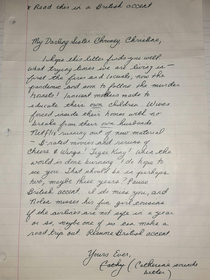 * Read this in a British accent
My Darling Sister Chrissy Christine,
I hope this letter finds you well
what trying times we are living in –
first the fires and locusts, now the
pandemic and soon to follow the murder
hornets! Innocent mothers made to
educate their own children. Wives
forced inside their homes with no
breaks from their own husbands
Netflix running out of new material
– Dratted movies and reruns of
Cheers & Wings "Tiger King"! While the
world is done burning I do hope to
see you. That should be in perhaps
two, maybe three years! Pause
British accent. I do miss you, and
Nolan misses his fun, girl cousins
If the airlines are not safe in a year
or so, maybe me & mom can make a
road trip out. Resume British accent
Yours Ever,
Cathy (Catherine sounds
better)